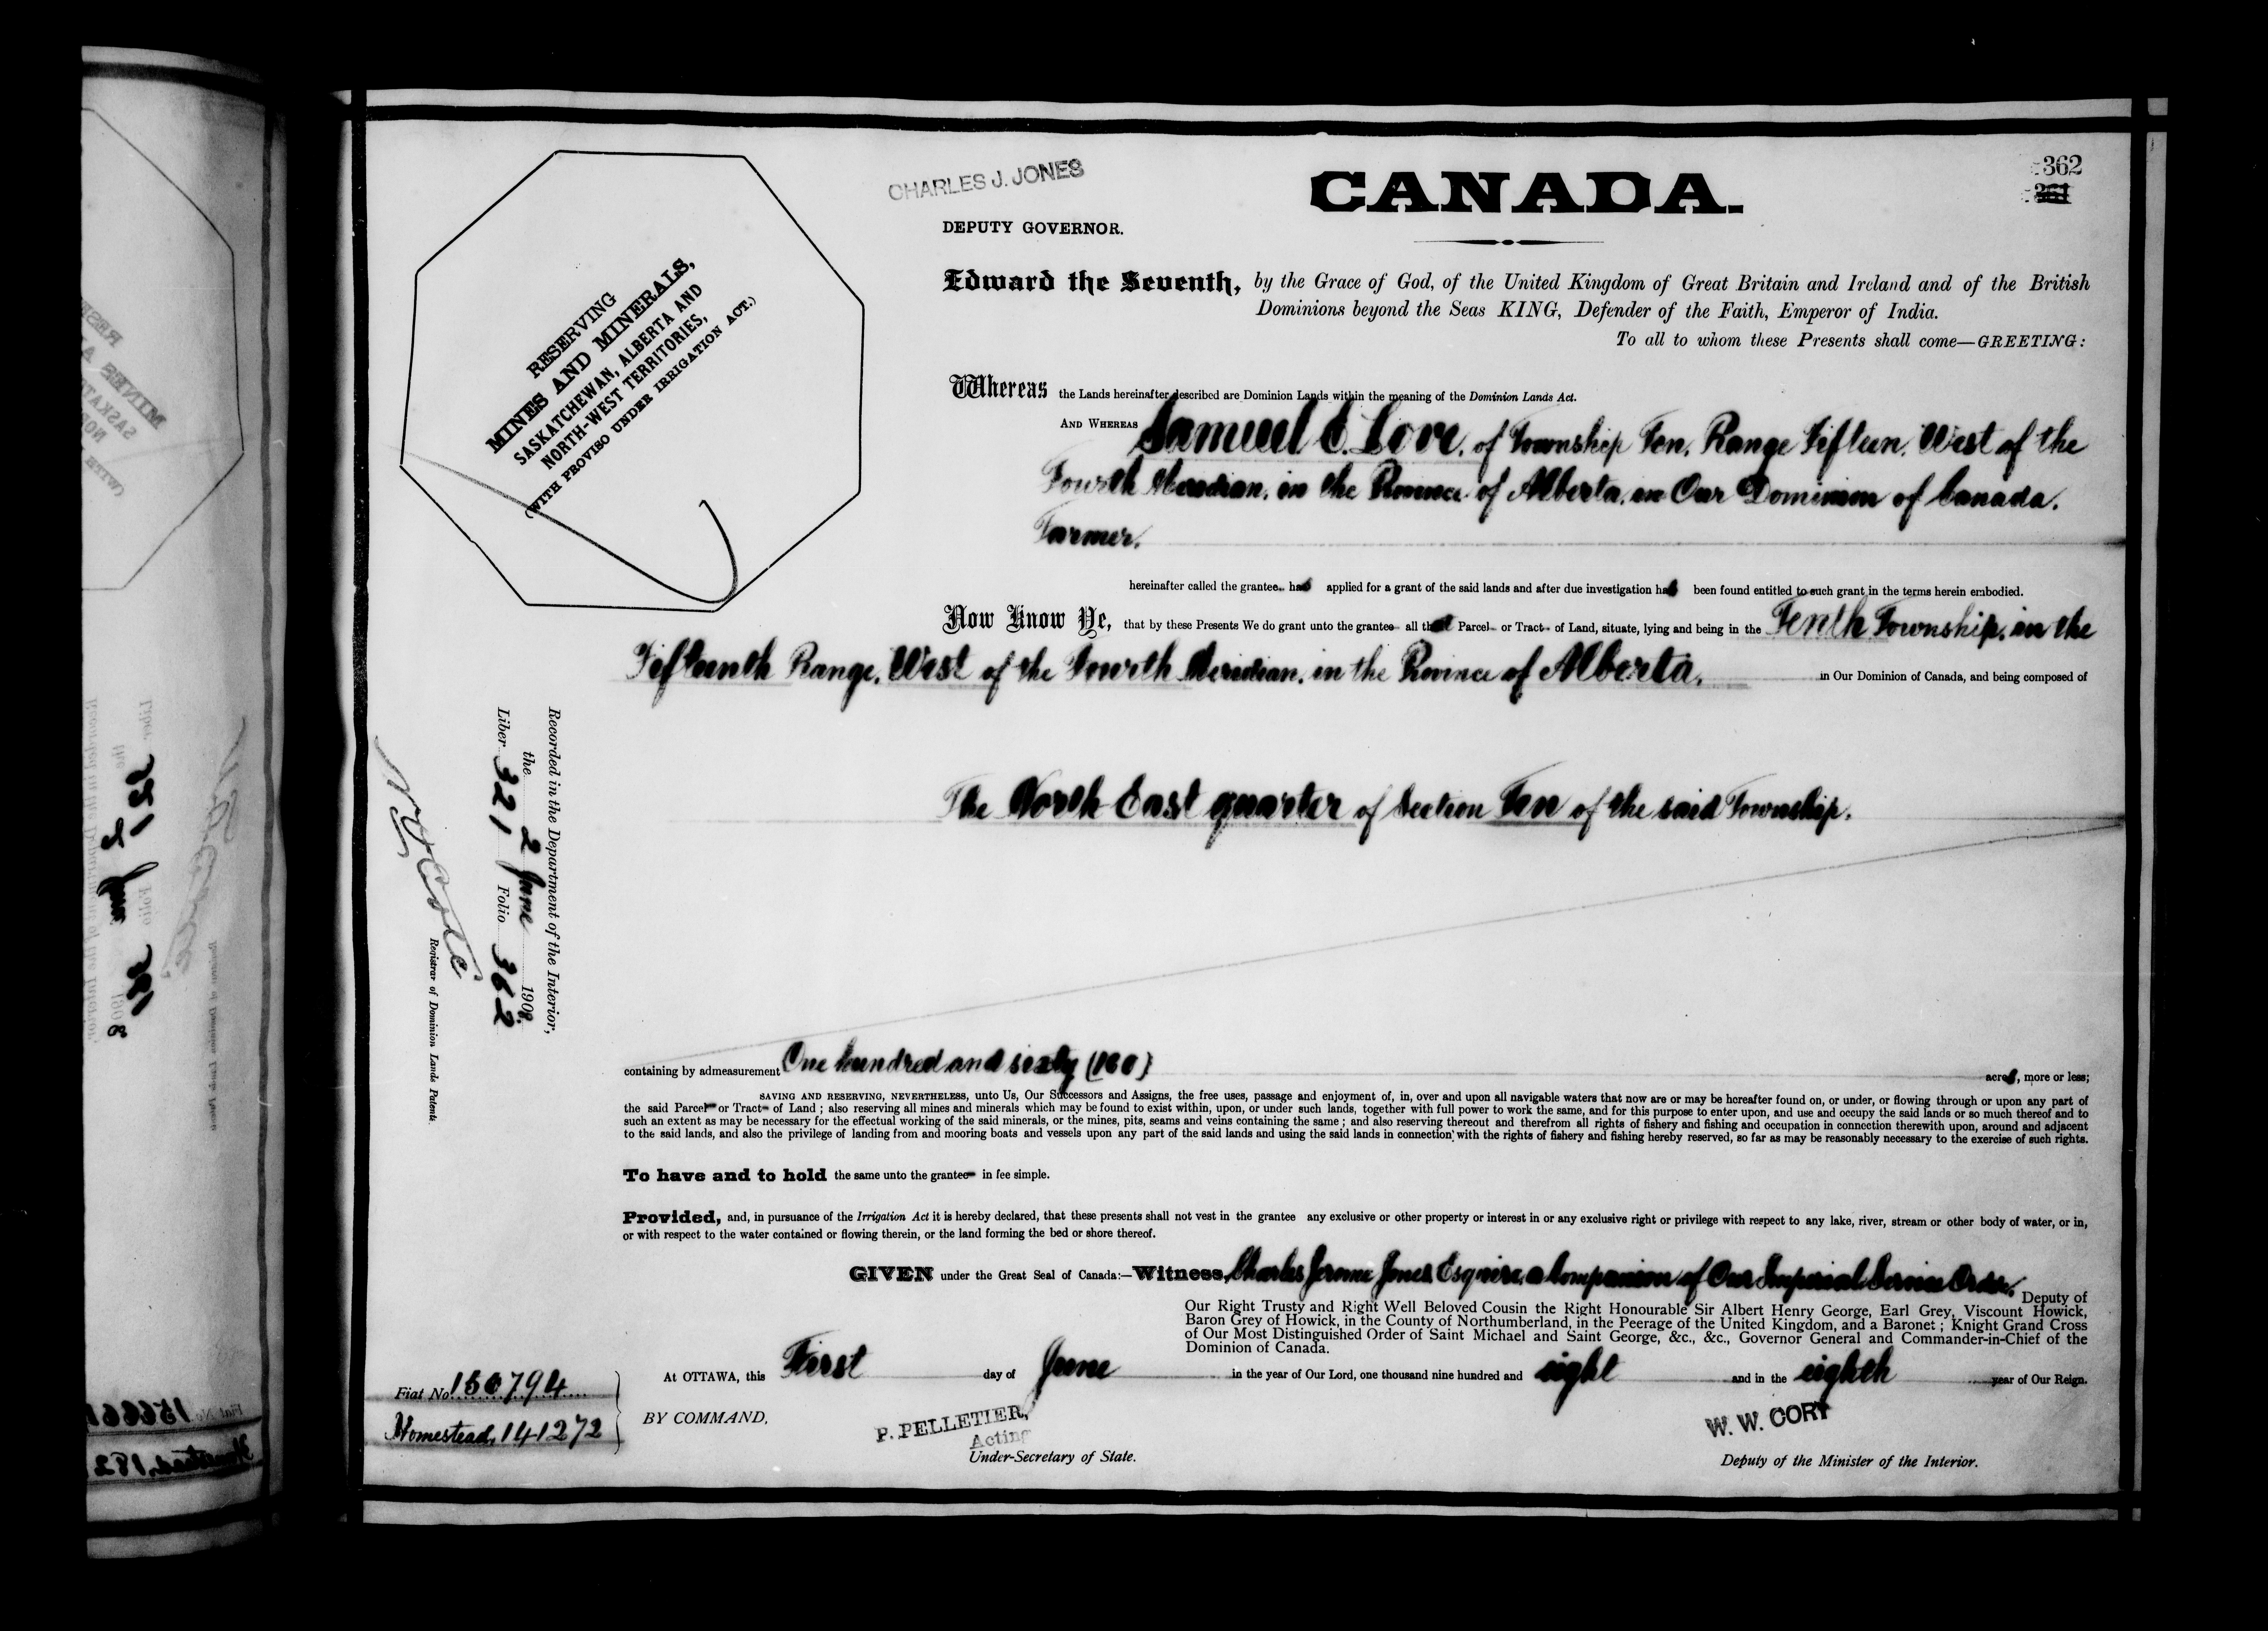 362
CHARLES J. JONES
CANADA.
DEPUTY GOVERNOR.
RESERVING
MINES AND MINERALS,
SASKATCHEWAN, ALBERTA AND
NORTH-WEST TERRITORIES,
(WITH PROVISO UNDER IRRIGATION ACT.)
Edward the Seventh, by the Grace of God, of the United Kingdom of Great Britain and Ireland and of the British
Dominions beyond the Seas KING, Defender of the Faith, Emperor of India.
To all to whom these Presents shall come—GREETING:
Whereas the Lands hereinafter described are Dominion Lands within the meaning of the Dominion Lands Act.
AND WHEREAS Samuel E. Love, of Township Ten, Range Fifteen, West of the
Fourth Meridian, in the Province of Alberta, in Our Dominion of Canada,
Farmer.
hereinafter called the grantee has applied for a grant of the said lands and after due investigation has been found entitled to such grant in the terms herein embodied.
Now Know Ye, that by these Presents We do grant unto the grantee all that Parcel or Tract of Land, situate, lying and being in the Tenth Township, in the
Fifteenth Range, West of the Fourth Meridian, in the Province of Alberta, in Our Dominion of Canada, and being composed of
The North East quarter of Section Ten of the said Township.
Recorded in the Department of the Interior,
the 2 June 1908.
Liber 321 Folio 362
Registrar of Dominion Lands Patents.
containing by admeasurement One hundred and sixty (160) acres, more or less;
SAVING AND RESERVING, NEVERTHELESS, unto Us, Our Successors and Assigns, the free uses, passage and enjoyment of, in, over and upon all navigable waters that now are or may be hereafter found on, or under, or flowing through or upon any part of
the said Parcel or Tract of Land ; also reserving all mines and minerals which may be found to exist within, upon, or under such lands, together with full power to work the same, and for this purpose to enter upon, and use and occupy the said lands or so much thereof and to
such an extent as may be necessary for the effectual working of the said minerals, or the mines, pits, seams and veins containing the same ; and also reserving thereout and therefrom all rights of fishery and fishing and occupation in connection therewith upon, around and adjacent
to the said lands, and also the privilege of landing from and mooring boats and vessels upon any part of the said lands and using the said lands in connection with the rights of fishery and fishing hereby reserved, so far as may be reasonably necessary to the exercise of such rights.
To have and to hold the same unto the grantee in fee simple.
Provided, and, in pursuance of the Irrigation Act it is hereby declared, that these presents shall not vest in the grantee any exclusive or other property or interest in or any exclusive right or privilege with respect to any lake, river, stream or other body of water, or in,
or with respect to the water contained or flowing therein, or the land forming the bed or shore thereof.
GIVEN under the Great Seal of Canada:—Witness, Charles Jerome Jones Esquire, a Companion of Our Imperial Service Order, Deputy of
Our Right Trusty and Right Well Beloved Cousin the Right Honourable Sir Albert Henry George, Earl Grey, Viscount Howick,
Baron Grey of Howick, in the County of Northumberland, in the Peerage of the United Kingdom, and a Baronet ; Knight Grand Cross
of Our Most Distinguished Order of Saint Michael and Saint George, &c., &c., Governor General and Commander-in-Chief of the
Dominion of Canada.
At OTTAWA, this First day of June in the year of Our Lord, one thousand nine hundred and eight and in the eighth year of Our Reign.
Fiat No. 150794
Homestead, 141272
BY COMMAND,
P. PELLETIER,
Acting
Under-Secretary of State.
W. W. CORY
Deputy of the Minister of the Interior.